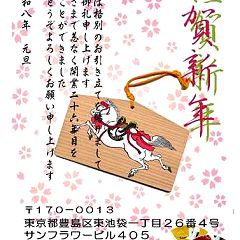 賀新年
は格別のお引き立て
御礼申し上げます
さまで恙なく開業二十六年目を
ことができました
どうぞよろしくお願い申し上げます
令和八年 元旦
〒170-0013
東京都豊島区東池袋一丁目26番4号
サンフラワービル405